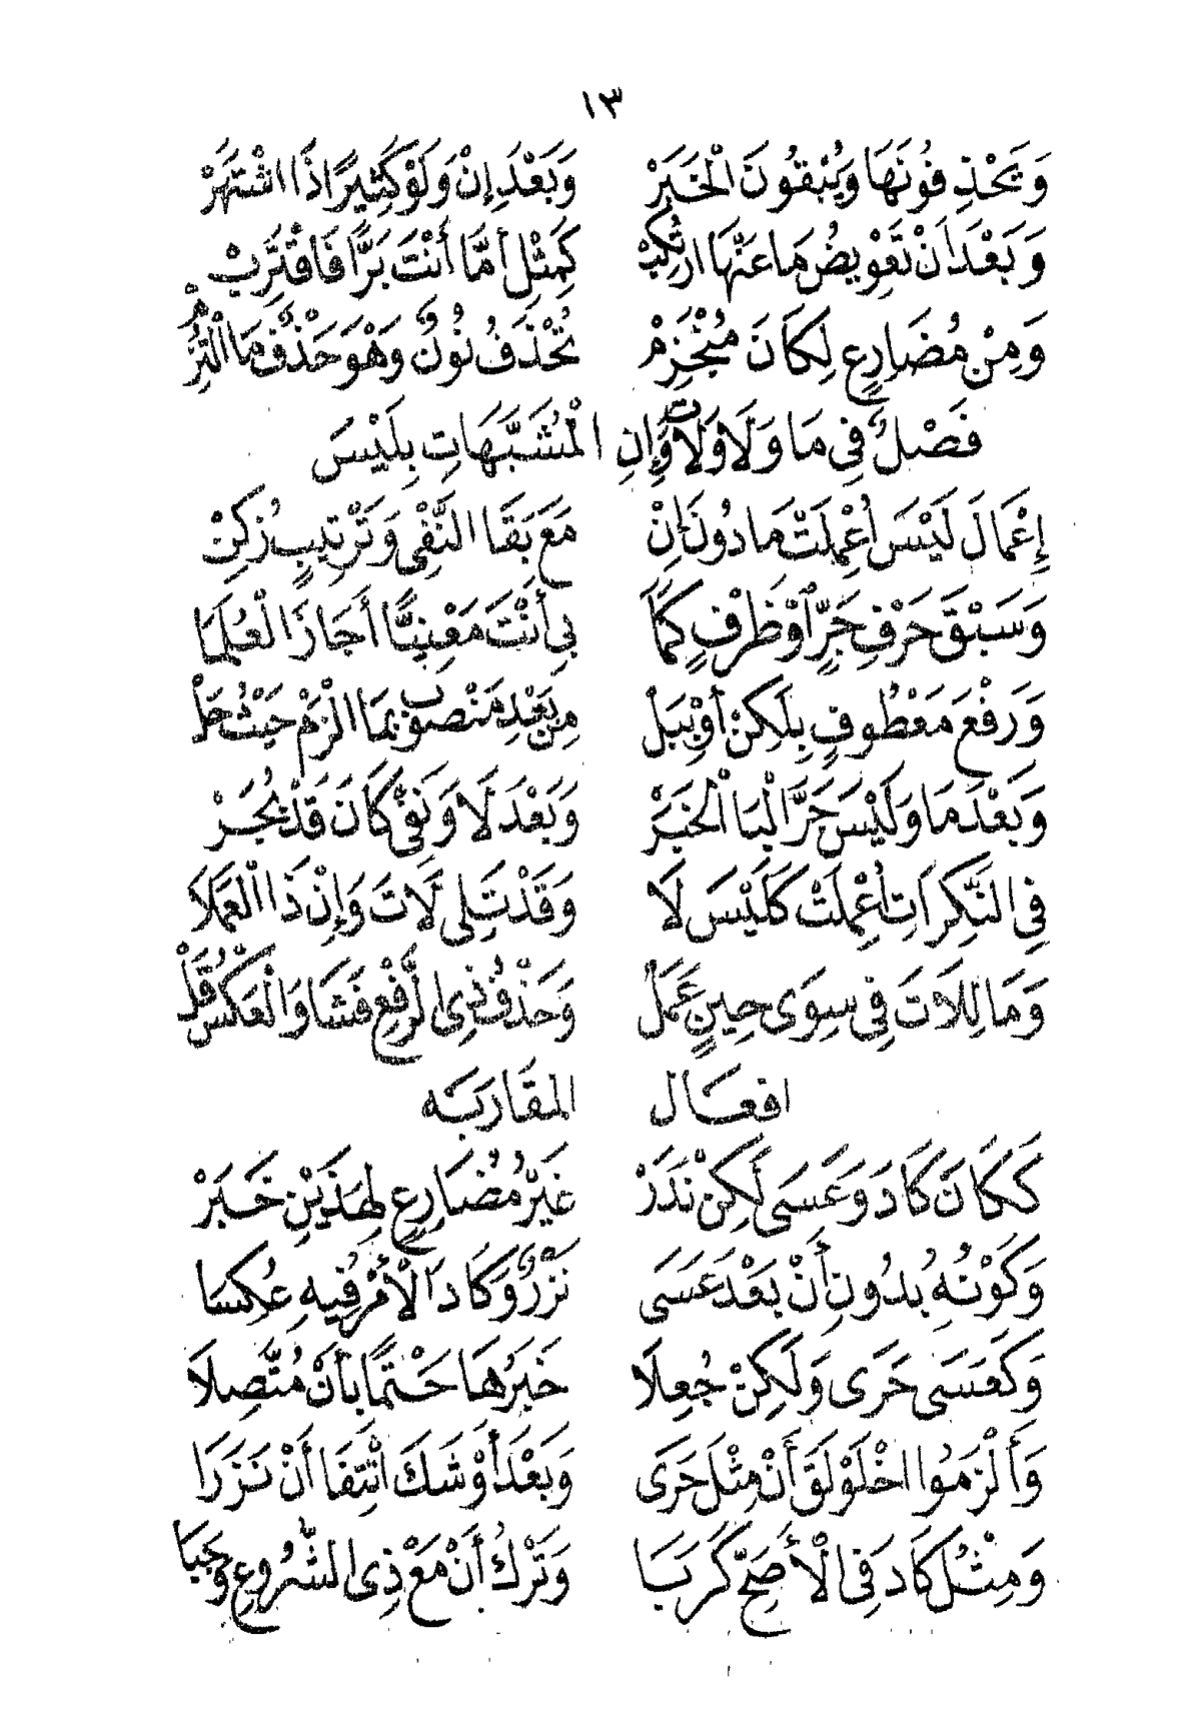 ١٣
وَيَحْذِفُونَهَا وَيُبْقُونَ الْخَبَرْ وَبَعْدَ إِنْ وَلَوْ كَثِيرًا ذَا اشْتَهَرْ
وَبَعْدَ أَنْ تَعْوِيضُ مَا عَنْهَا ارْتُكِبْ كَمِثْلِ أَمَّا أَنْتَ بَرًّا فَاقْتَرِبْ
وَمِنْ مُضَارِعٍ لِكَانَ مُنْجَزِمْ تُحْذَفُ نُونٌ وَهْوَ حَذْفٌ مَا الْتُزِمْ
فَصْلٌ فِي مَا وَلَا وَلَاتَ وَإِنِ الْمُشَبَّهَاتِ بِلَيْسَ
إِعْمَالَ لَيْسَ أُعْمِلَتْ مَا دُونَ إِنْ مَعَ بَقَا النَّفْيِ وَتَرْتِيبٍ زُكِنْ
وَسَبْقَ حَرْفِ جَرٍّ اوْ ظَرْفٍ كَمَا بِي أَنْتَ مَعْنِيًّا أَجَازَ الْعُلَمَا
وَرَفْعَ مَعْطُوفٍ بِلَكِنْ أَوْ بِبَلْ مِنْ بَعْدِ مَنْصُوبٍ بِمَا الْزَمْ حَيْثُ حَلْ
وَبَعْدَ مَا وَلَيْسَ جَرَّ الْبَا الْخَبَرْ وَبَعْدَ لَا وَنَفْيِ كَانَ قَدْ يُجَرْ
فِي النَّكِرَاتِ أُعْمِلَتْ كَلَيْسَ لَا وَقَدْ تَلِي لَاتَ وَإِنْ ذَا الْعَمَلَا
وَمَا لِلَاتَ فِي سِوَى حِينٍ عَمَلْ وَحَذْفُ ذِي الرَّفْعِ فَشَا وَالْعَكْسُ قَلْ
افعَال المقَاربَه
كَكَانَ كَادَ وَعَسَى لَكِنْ نَدَرْ غَيْرُ مُضَارِعٍ لِهَذَيْنِ خَبَرْ
وَكَوْنُهُ بِدُونِ أَنْ بَعْدَ عَسَى نَزْرٌ وَكَادَ الْأَمْرُ فِيهِ عُكِسَا
وَكَعَسَى حَرَى وَلَكِنْ جُعِلَا خَبَرُهَا حَتْمًا بِأَنْ مُتَّصِلَا
وَأَلْزَمُوا اخْلَوْلَقَ أَنْ مِثْلَ حَرَى وَبَعْدَ أَوْشَكَ انْتِفَا أَنْ نَزَرَا
وَمِثْلُ كَادَ فِي الْأَصَحِّ كَرَبَا وَتَرْكُ أَنْ مَعْ ذِي الشُّرُوعِ وَجَبَا